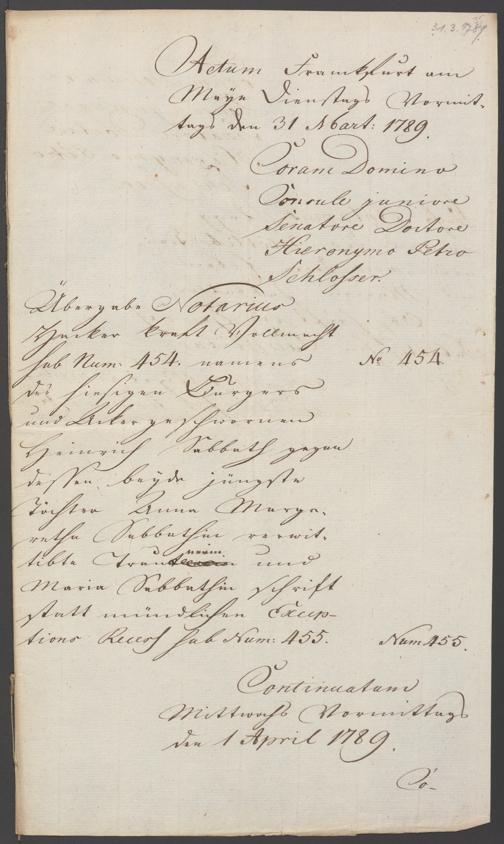 31.3.1789.
Actum Franckfurt am
Mayn Dienstags Vormit-
tags den 31 Mart: 1789.
Coram Domino
Consule juniore
Senatore Doctore
Hieronymo Petro
Schlosser.
Übergabe Notarius
Hacker kraft Vollmacht
sub Num: 454. namens
No 454
des hiesigen Burgers
und Ackergeschwornen
Heinrich Sabbath gegen
dessen beyde jüngste
Töchter Anna Marga-
retha Sabbathin verwit-
tibte und
Maria Sabbathin schrift
statt mündlichen Excep-
tions Recess sub Num: 455.
Num 455.
Continuatum
Mittwochs Vormittags
den 1 April 1789.
Co-